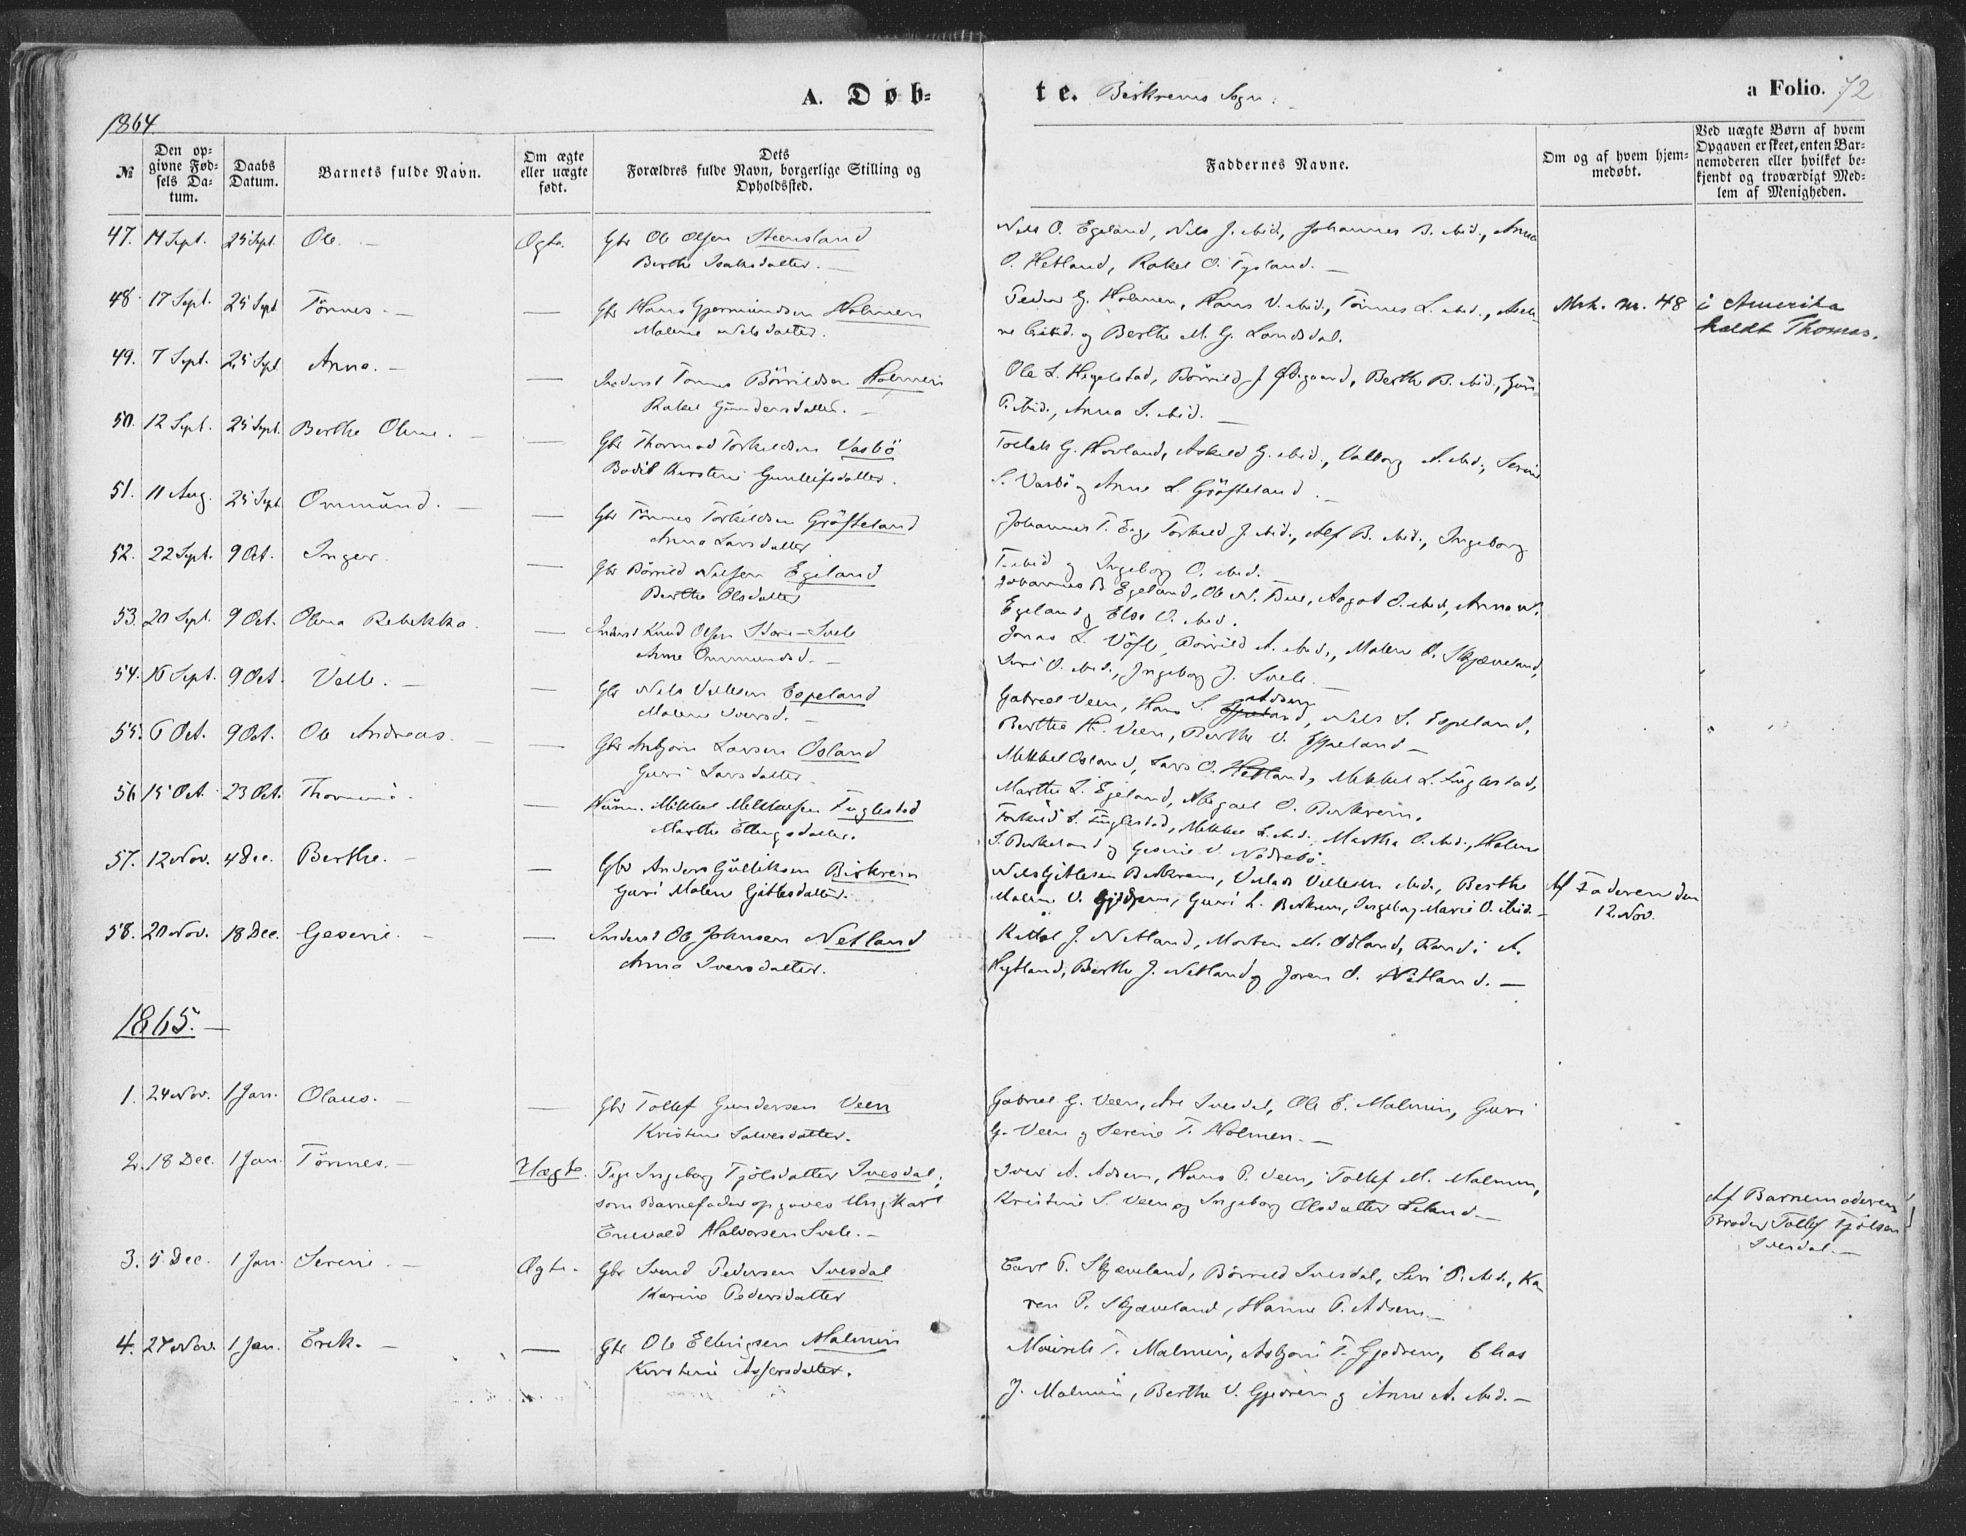 A. Døb-
te. Birkrems Sogn.
a Folio. 72
1864
№
Den op-
givne Fød-
sels Da-
tum.
Daabs
Datum.
Barnets fulde Navn.
Om ægte
eller uægte
født.
Dets
Forældres fulde Navn, borgerlige Stilling og
Opholdssted.
Faddernes Navne.
Om og af hvem hjem-
medøbt.
Ved uægte Børn af hvem
Opgaven er skeet, enten Bar-
nemoderen eller hvilket be-
kjendt og troværdigt Med-
lem af Menigheden.
47. 14 Sept. 25 Sept. Ole. — Ægte. Gbr Ole Olsen Steensland
Berthe Isaksdatter. —
Nils O. Egeland, Nils J. ibid., Johannes B. ibid., Anna
O. Hetland, Rakel O. Tysland. —
48 17 Sept. 25 Sept Tönnes. — — Gbr Hans Gjermundsen Holmen
Malene Nilsdatter.
Peder G. Holmen, Hans V. ibid., Tönnes L. ibid.,
og Berthe M. G. Landsdal.
Mrk. nr. 48 i Amerika
kaldt Thomas.
49. 7 Sept. 25 Sept Anna. — — Inderst Tönnes Börrildsen Holmen
Rakel Gundersdatter. —
Ole L. Hegelstad, Börrild J. Ödegaard, Berthe B. ibid., Guri
P. ibid., Anna S. ibid. —
50. 12 Sept. 25 Sept. Berthe Oline. — — Gbr Thormod Torkeldsen Vasbö
Bodil Kirstine Gunleifsdatter.
Tollak G. Hovland, Askild G. ibid., Valborg A. ibid., Serine
S. Vasbö og Anne L. Gröfteland. —
51. 11 Aug. 25 Sept Ommund. — — Gbr Tönnes Torkildsen Gröfteland
Anna Larsdatter
Johannes T. Eeg, Torkild J. ibid., Alf B. ibid., Ingeborg
T. ibid og Ingeborg O. ibid.
52. 22 Sept. 9 Oct. Inger. — Gbr Börrild Nilsen Egeland
Berthe Olsdatter
Johannes B Egeland, Ole N. Bue, Aagot O. ibid, Anna N.
Egeland og Else O. ibid.
53. 20 Sept. 9 Oct. Olena Rebekka. — Inderst Knud Olsen Store-Svele
Anne Ommundsd. —
Jonas L. Böfle, Börrild A. ibid., Malene O. Skjæveland,
Siri O. ibid., Ingeborg J. Svele. —
54. 16 Sept. 9 Oct. Velle. — — Gbr Nils Vellesen Espeland
Malene Iversd. —
Gabriel Veen, Hans S. Adsem, Nils S. Espeland,
Berthe H. Veen, Berthe V. Espeland —
55. 6 Oct. 9 Oct. Ole Andreas. — — Gbr Asbjörn Larsen Osland
Guri Larsdatter
Mikkel Osland, Lars O. Hetland, Mikkel L. Fuglestad,
Marthe L. Egeland, Abigael O. Birkrem.
56 15 Oct. 23 Oct. — Huusm. Mikkel Mikkelsen Fuglestad
Marthe Ellingsdatter.
Torkild S. Fuglestad, Mikkel L. ibid., Martha O. ibid., Helene
S. Birkeland og Gesine V. Nedrebö.
57. 12 Nov. 4 Dec. Berthe. — — Gbr Anders Gulliksen Birkrem
Guri Malene Gitlesdatter.
Nils Gitlesen Birkrem, Velas Vellesen ibid., Berthe
Malene V. Gjedrem, Guri L. Birkrem, Ingeborg Marie O. ibid. —
Af Faderen den
12. Nov.
58. 20 Nov. 18 Dec. Geserie. — — Inderst Ole Johnsen Netland
Anna Iversdatter.
Ketel J. Netland, Morten M. Osland, Randi A.
Hytland, Berthe J. Netland og Joren O. Netland. —
1865. —
1. 24 Nov. 1 Jan. Olaus. — — Gbr Tollef Gundersen Veen
Kristine Salvesdatter.
Gabriel G. Veen, Are Ivesdal, Ole E. Malmin, Guri
G. Veen og Serine T. Holmen. —
2. 18 Dec. 1 Jan. Tönnes. — Uægte. Pige Ingeborg Tjölsdatter Ivesdal;
som Barnefader opgives Ungkarl
Enevald Halvorsen Svele. —
Iver A. Adsem, Hans P. Veen, Tollef M. Malmin,
Kristine S. Veen og Ingeborg Olsdatter Leland —
Af Barnemoderens
Broder Tollef Tjölsen
Ivesdal. —
3. 5 Dec. 1 Jan. Serine. — Ægte. Gbr Svend Pedersen Ivesdal
Karine Pedersdatter
Carl P. Skjæveland, Börrild Ivesdal, Siri P. ibid., Ka-
ren P. Skjæveland, Hanne P. Adsem —
4. 24 Nov. 1 Jan. Erik. — — Gbr Ole Ellingsen Malmin
Kirstine Assersdatter.
Mourits T. Malmin, Asbjörn T. Gjedrem, Elias
J. Malmin, Berthe V. Gjedrem og Anne A. ibid. —